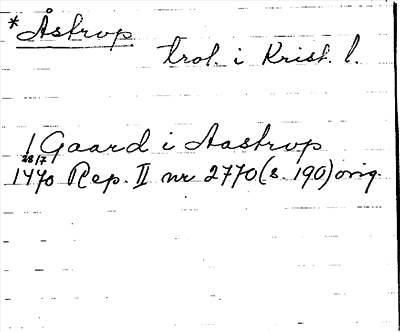 * Åstrup
trol. i Krist. l.
1 Gaard i Aastrup
28/7
1470 Rep. II nr 2770 (s. 190) orig.